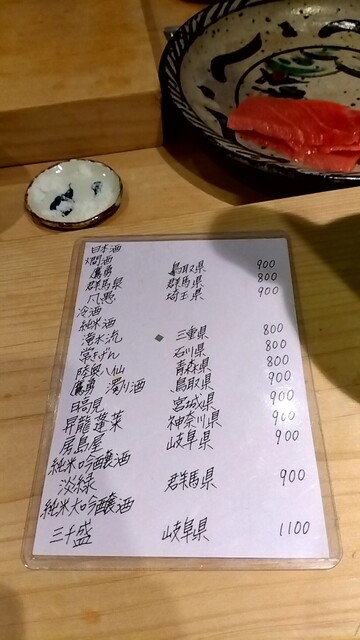 日本酒
燗酒
鷹勇 鳥取県 900
群馬泉 群馬県 800
埼玉県 900
冷酒
純米酒
滝水流 三重県 800
常きげん 石川県 800
陸奥八仙 青森県 800
鷹勇 濁り酒 鳥取県 900
日高見 宮城県 900
昇龍蓬莱 神奈川県 900
房島屋 岐阜県 900
純米吟醸酒
淡緑 群馬県 900
純米大吟醸酒
三千盛 岐阜県 1100